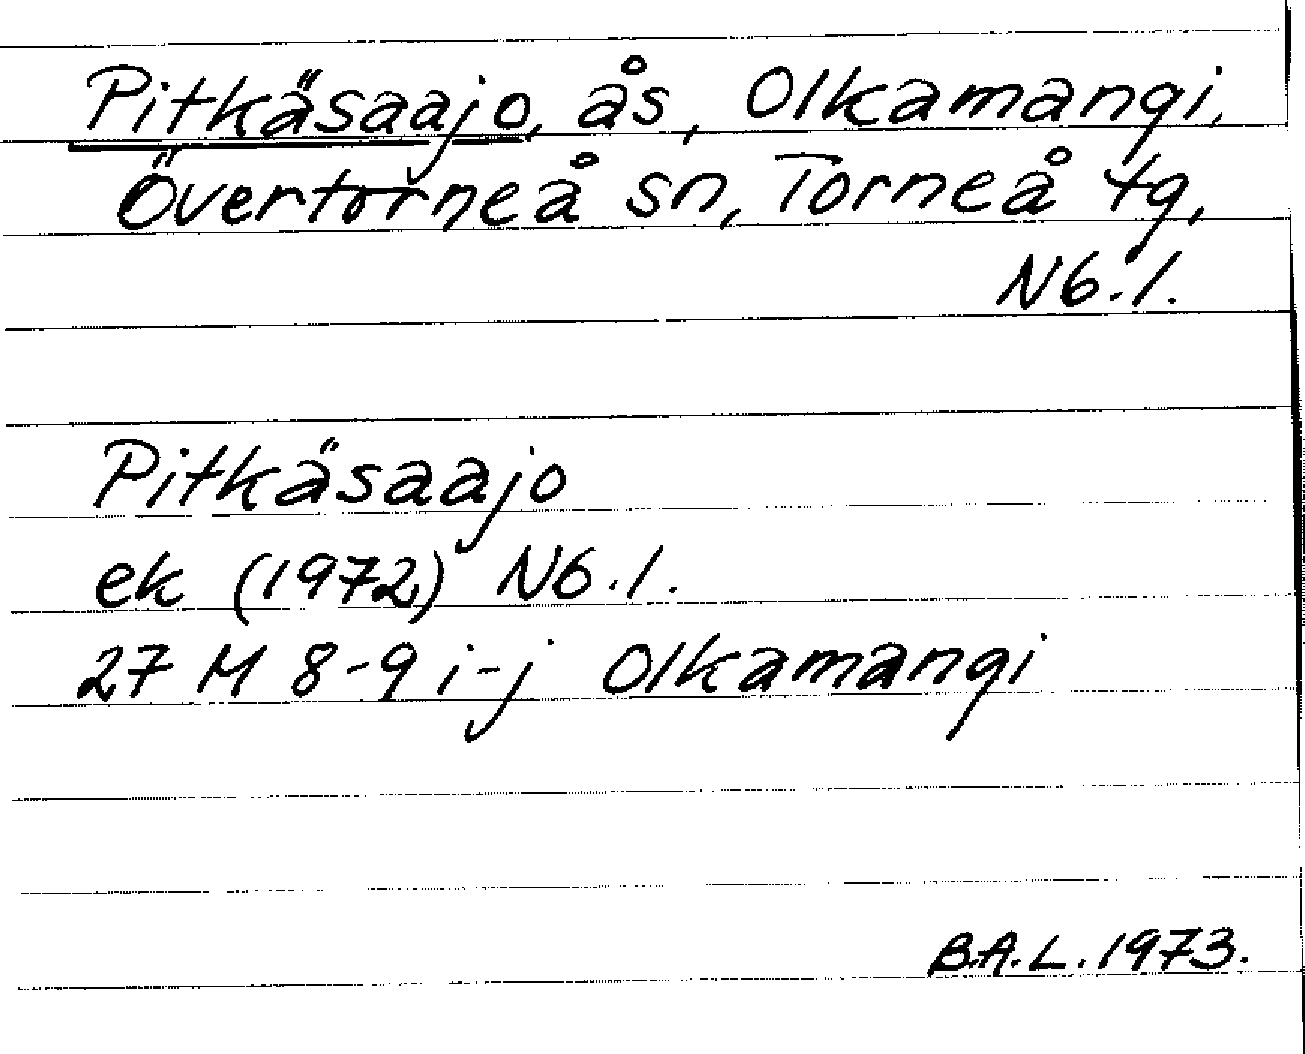 Pitkäsaajo, ås, Olkamangi,
Övertorneå sn, Torneå tg,
Nb.l.
Pitkäsaajo
ek (1972) Nb.l.
27 M 8-9 i-j Olkamangi
B.A.L. 1973.